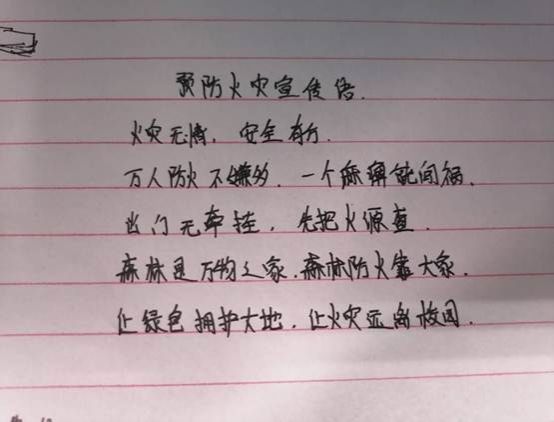 预防火灾宣传语.
火灾无情, 安全有行.
万人防火不嫌多. 一个麻痹能闯祸.
出门无牵挂, 先把火源查.
森林是万物之家. 森林防火靠大家.
让绿色拥护大地. 让火灾远离校园.